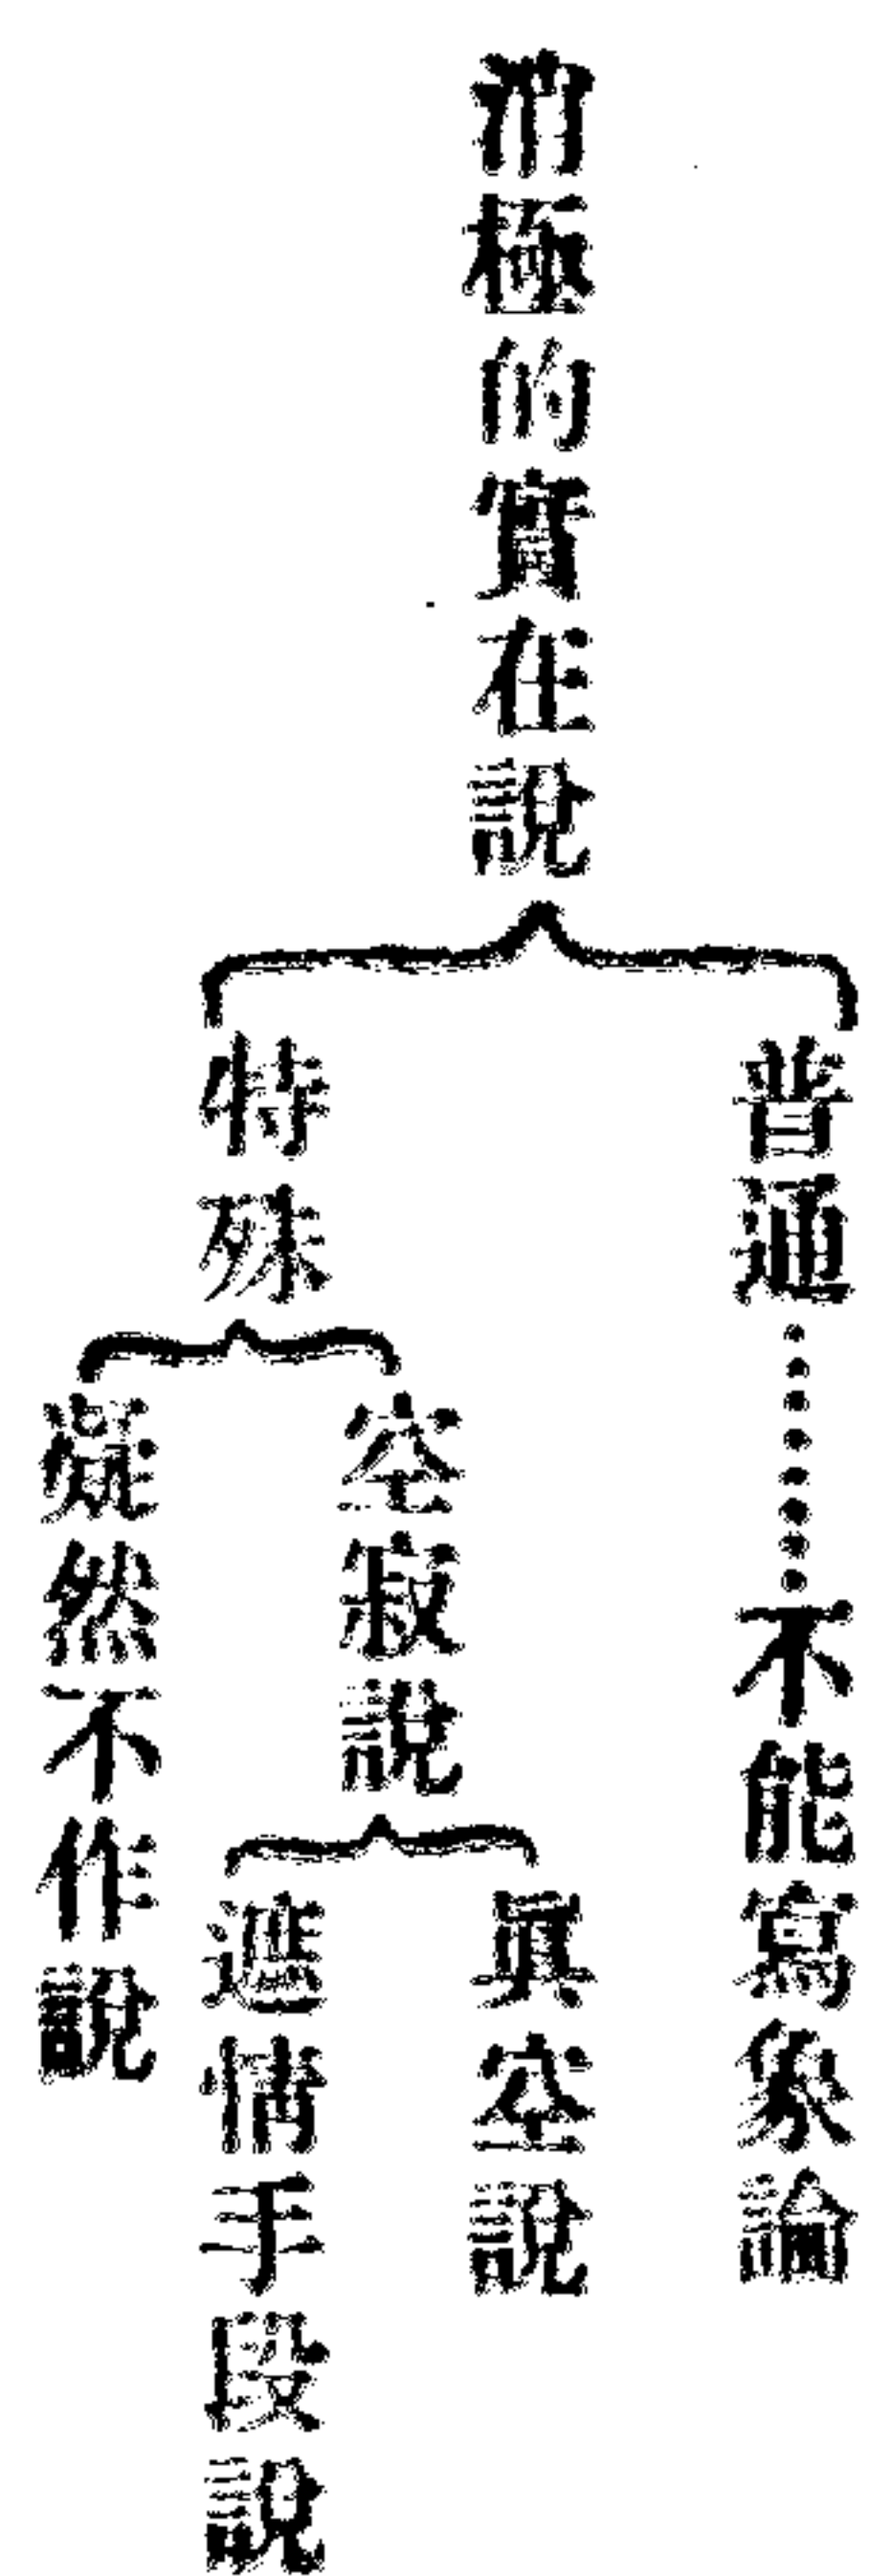 消極的實在說
普通………不能寫象論
特殊
空寂說
眞空說
遮情手段說
凝然不作說